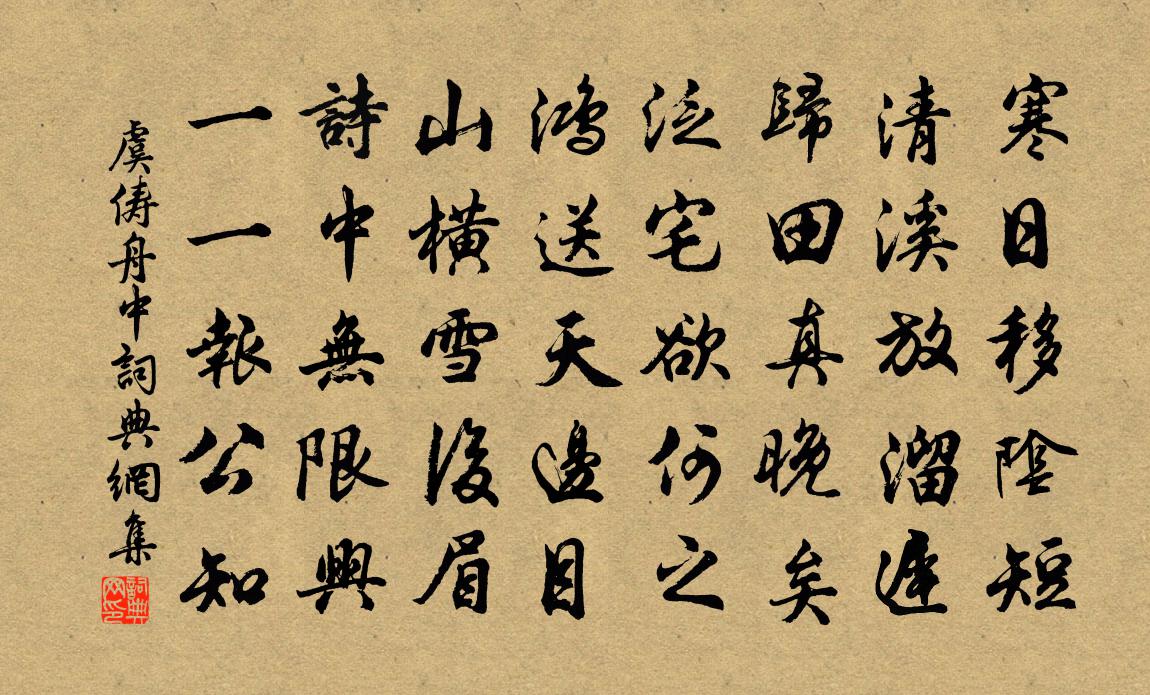 寒日移陰短
清溪放溜遲
歸田真晚矣
泛宅欲何之
鴻送天邊目
山橫雪後眉
詩中無限興
一一報公知
虞儔舟中詞典網集
詞典網印